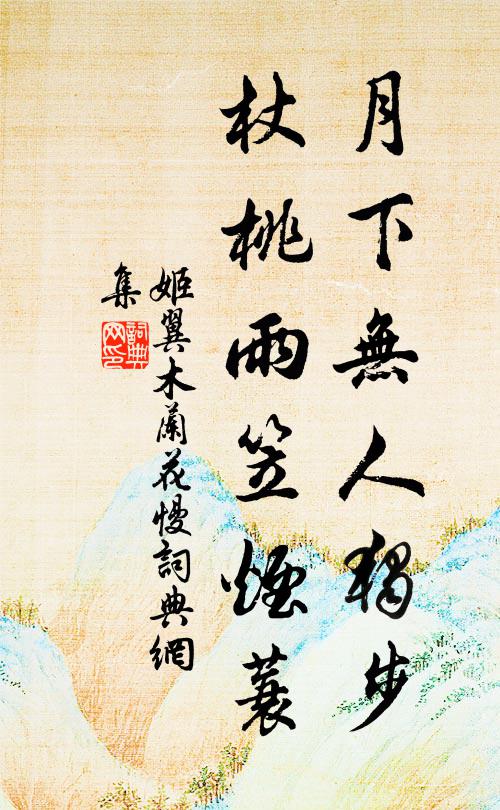 月下無人獨步
杖桃雨笠煙蓑
姬翼木蘭花慢詞典網
集
詞典
网印